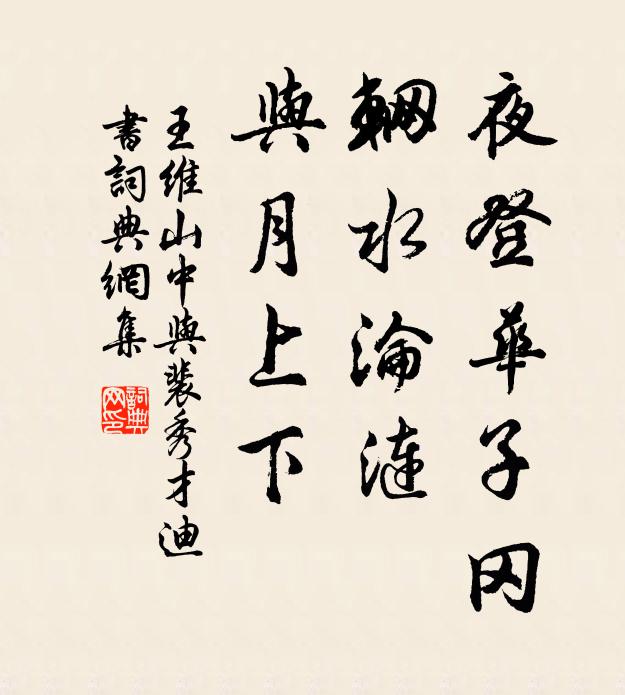 夜登華子冈
輞水淪漣
與月上下
王維山中與裴秀才迪
書詞典網集
詞典网印